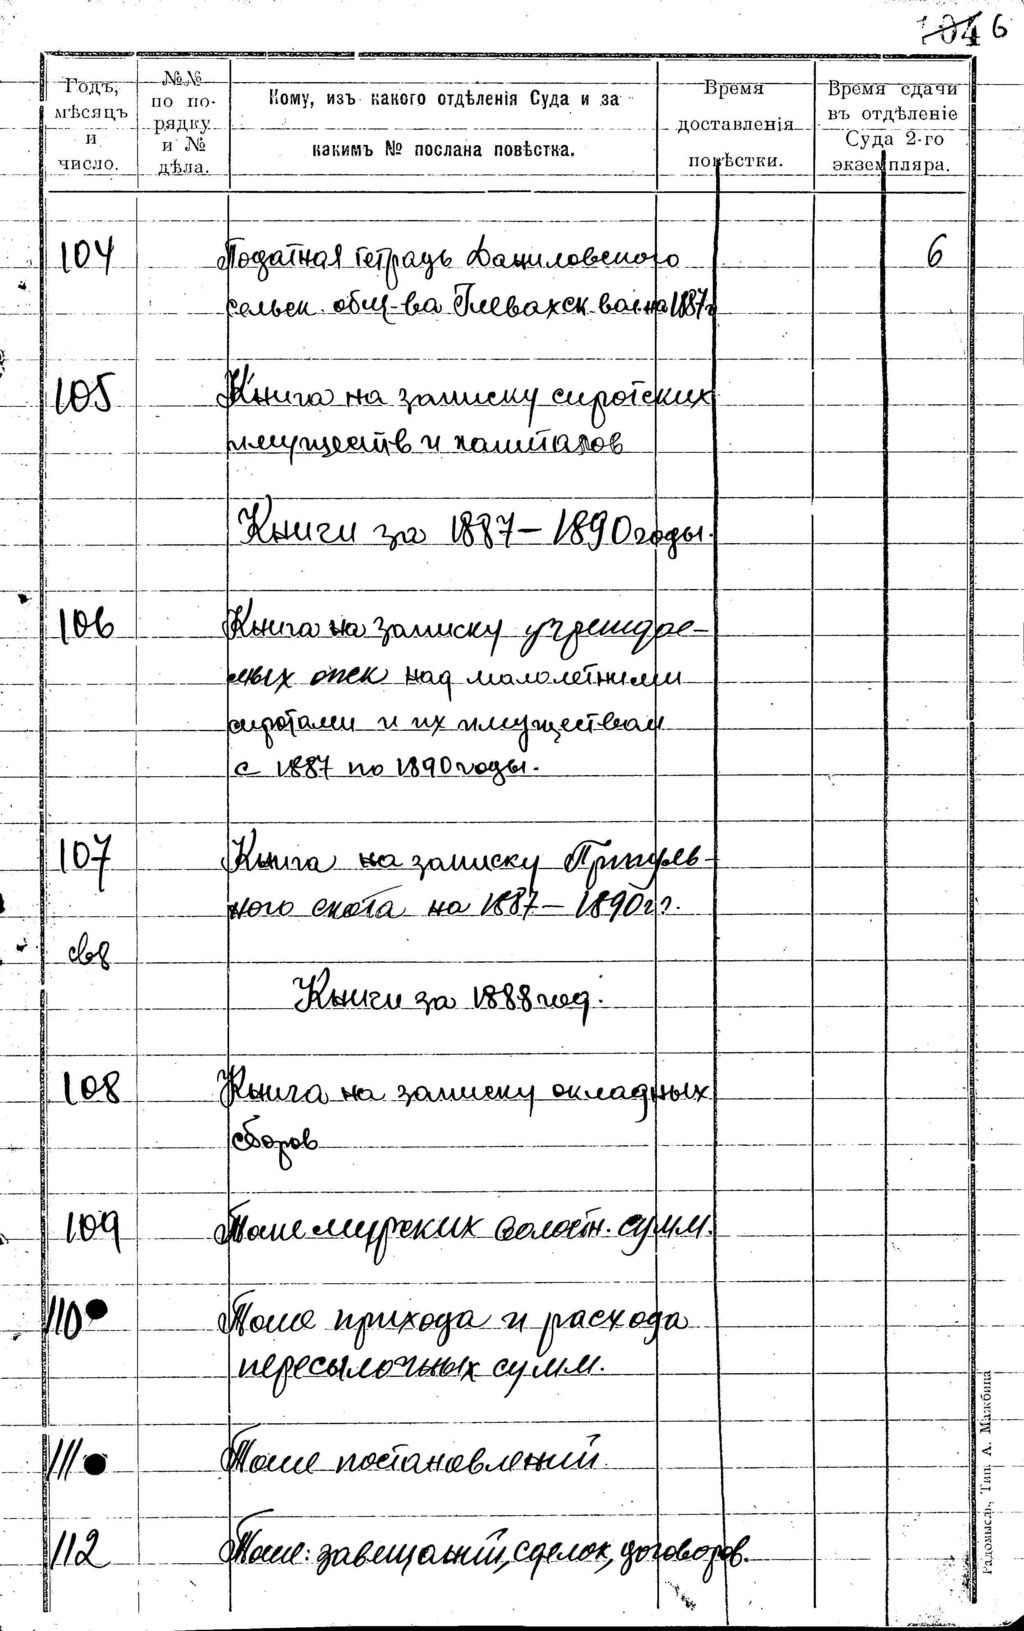 104 6
Годъ, мѣсяцъ и число.
№№ по по-рядку и № дѣла.
Кому, изъ какого отдѣленія Суда и за какимъ № послана повѣстка.
Время доставленія повѣстки.
Время сдачи въ отдѣленіе Суда 2-го экземпляра.
104 Податная тетрадь Даниловского 6
сельск. общ-ва Глевахск. вол. на 1887г
105 Книга на записку сиротских
имуществ и капиталов
Книги за 1887-1890 годы.
106 Книга на записку учреждае-
мых опек над малолетними
сиротами и их имуществам
с 1887 по 1890 годы.
107 Книга на записку Пригуль-
ного скота на 1887-1890 г.г.
Книги за 1888 год.
108 Книга на записку окладных
сборов
109 Тоже мирских волостн. сумм.
110 Тоже прихода и расхода
пересылочных сумм.
111 Тоже постановлений
112 Тоже: завещаний, сделок, договоров.
Радомысль, Тип. А. Мажбица